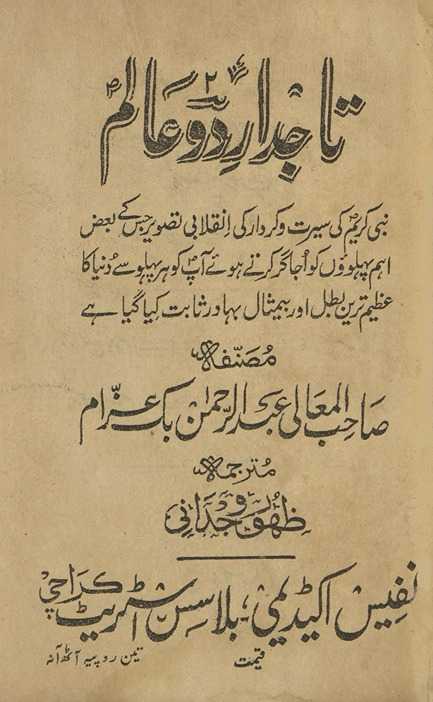 تاجدارِ دو عالمؐ
نبی کریمؐ کی سیرت و کردار کی اِنقلابی تصویر جس کے بعض
اہم پہلوؤں کو اُجاگر کرتے ہوئے آپؐ کو ہر پہلو سے دُنیا کا
عظیم ترین بطل اور بیمثال بہادر ثابت کیا گیا ہے
مُصنّفہ
صاحب المعالی عبدالرحمٰن بک عزّام
مُترجمہ
ظہور وجدانی
نفیس اکیڈیمی، بلاسس اسٹریٹ کراچی
قیمت تین روپیہ آٹھ آنہ